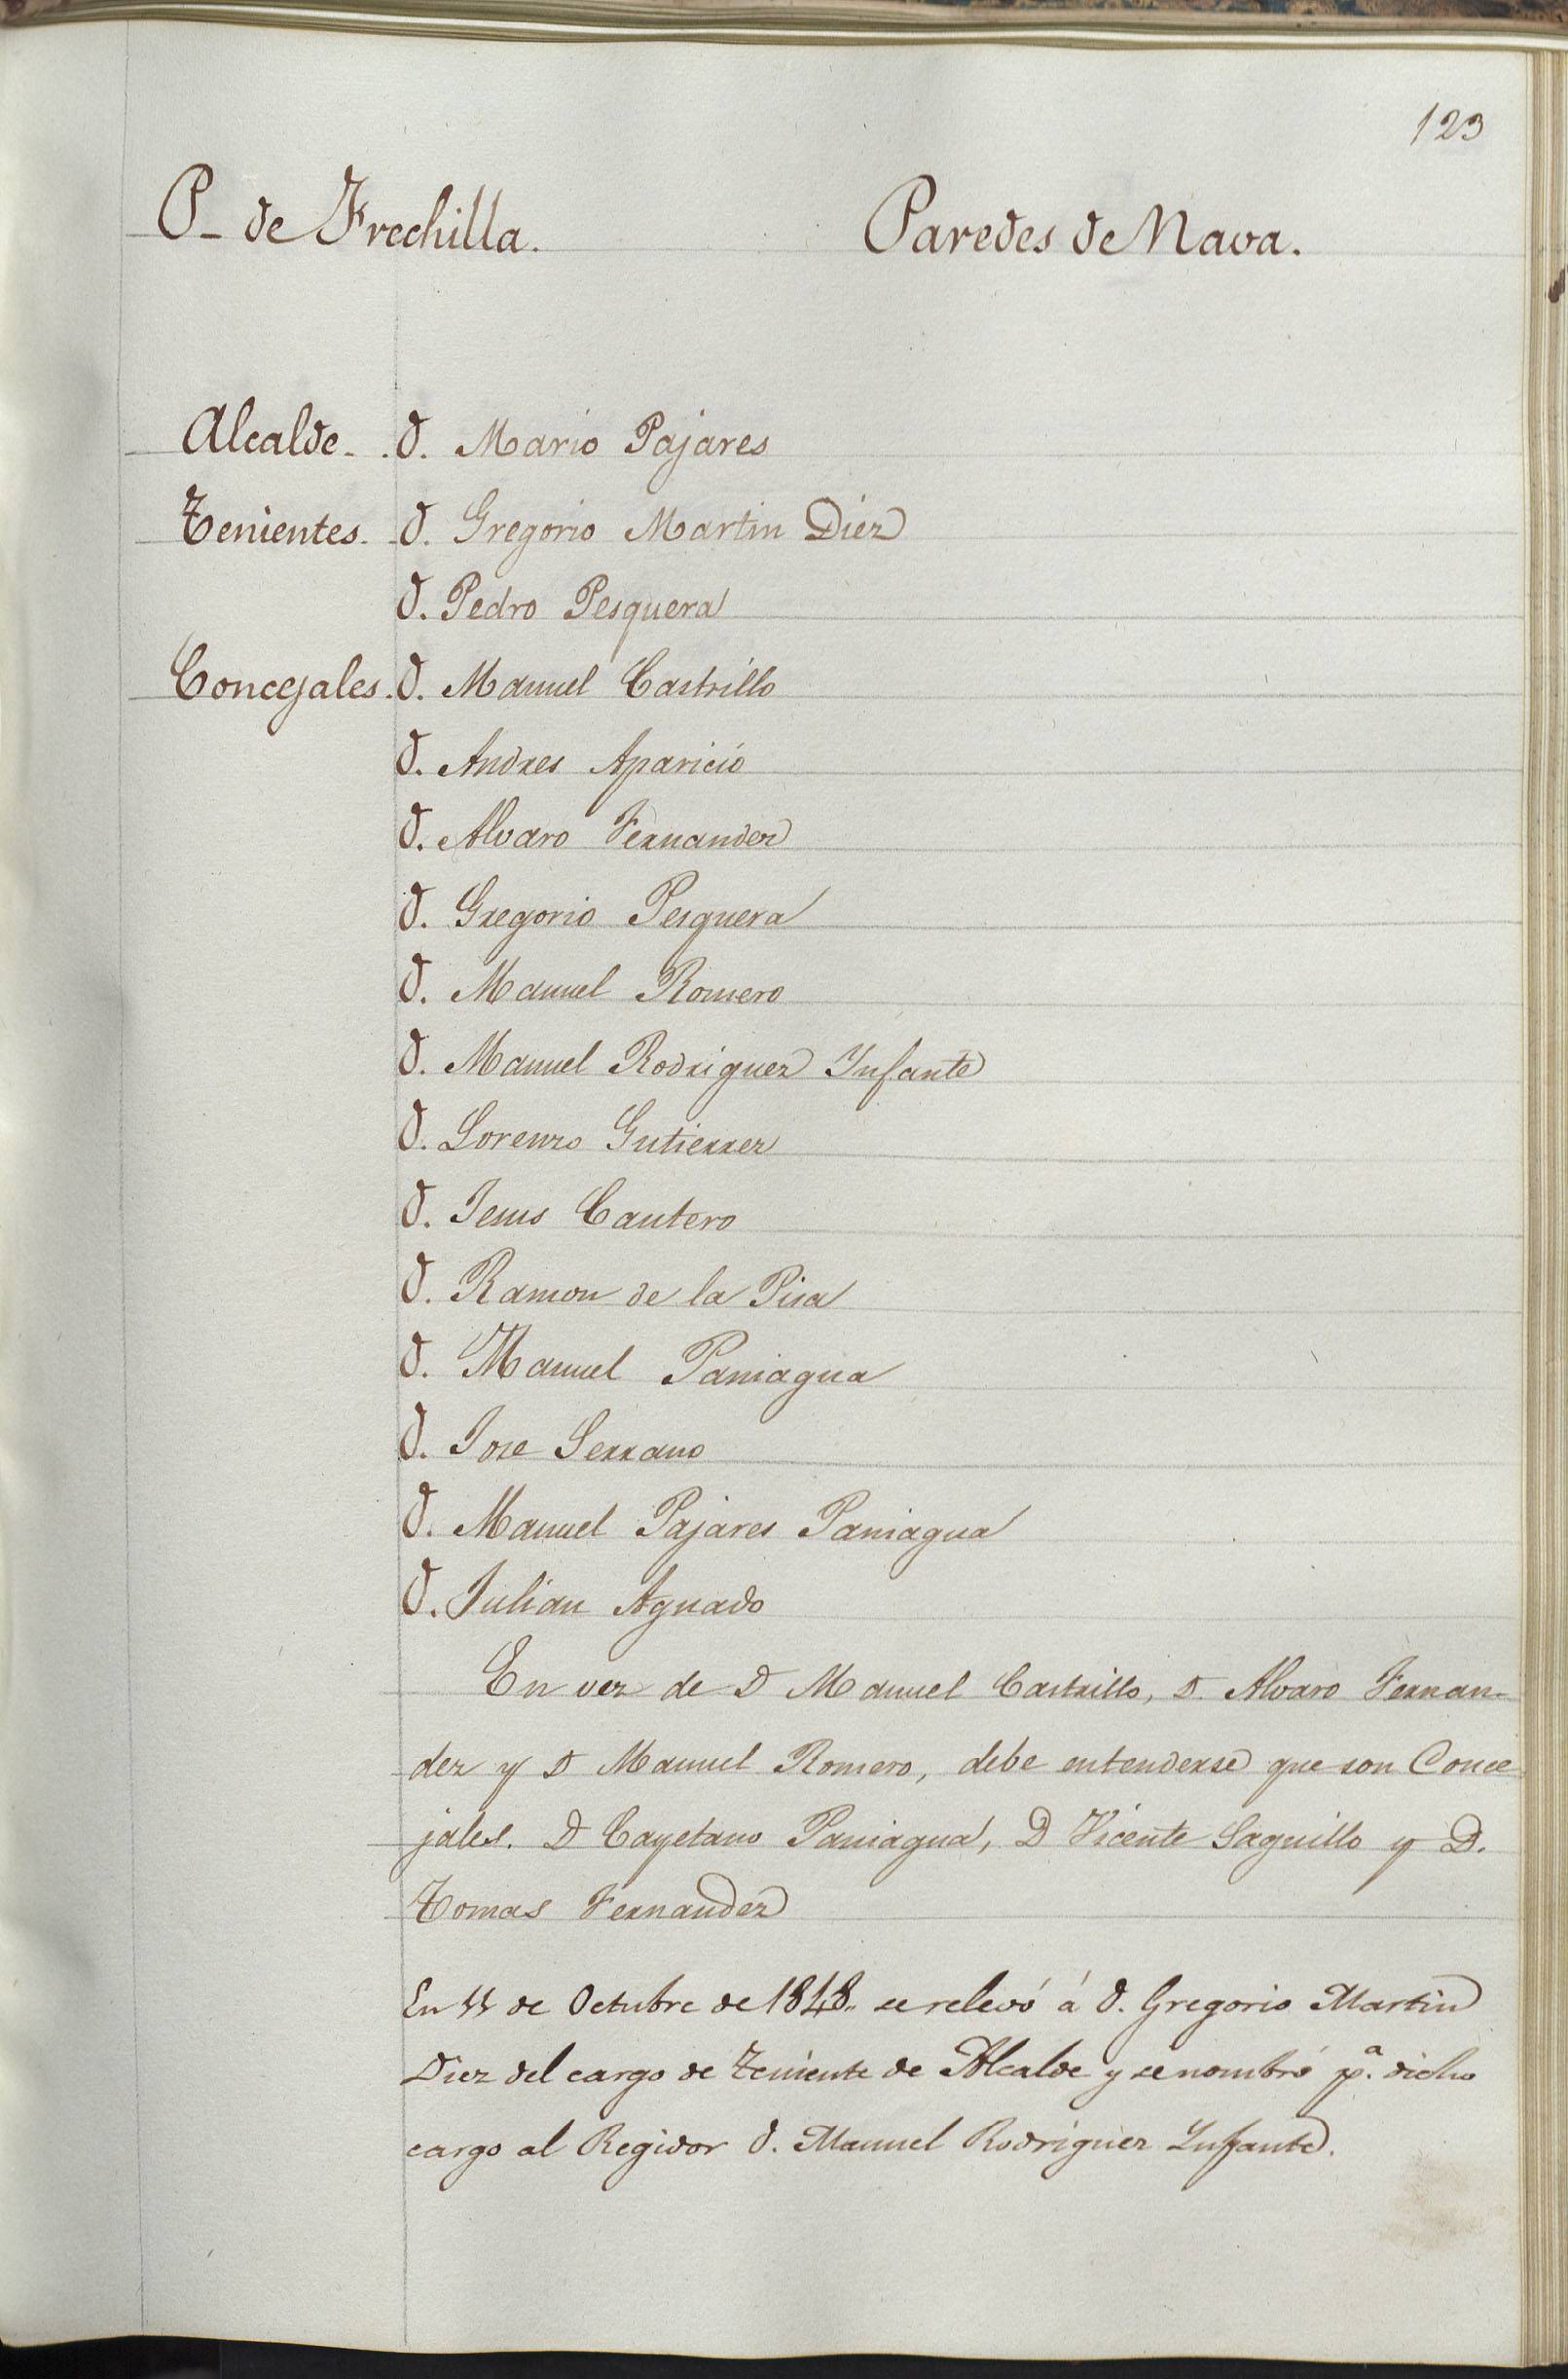 123
P- de Frechilla. Paredes de Nava.
Alcalde - . D. Mario Pajares
Tenientes - . D. Gregorio Martin Diez
D. Pedro Pesquera
Concejales . D. Manuel Castrillo
D. Andres Aparicio
D. Alvaro Fernandez
D. Gregorio Pesquera
D. Manuel Romero
D. Manuel Rodriguez Infante
D. Lorenzo Gutierrez
D. Jesus Cantero
D. Ramon de la Pisa
D. Manuel Paniagua
D. Jose Serrano
D. Manuel Pajares Paniagua
D. Julian Aguado
En vez de D Manuel Castrillo, D. Alvaro Fernan-
dez y D Manuel Romero, debe entenderse que son Conce
jales. D Cayetano Paniagua, D Vicente Saguillo y D.
Tomas Fernandez
En 11 de Octubre de 1848. se relevó á D. Gregorio Martin
Diez del cargo de Teniente de Alcalde y se nombró pª. dicho
cargo al Regidor D. Manuel Rodriguez Infante.